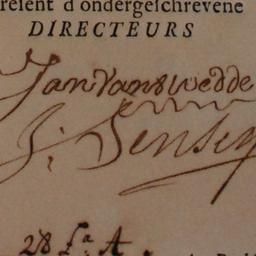 reient d'ondergeschrevene
DIRECTEURS
Jan van Swedde
J: Jensen
28 f.ª A